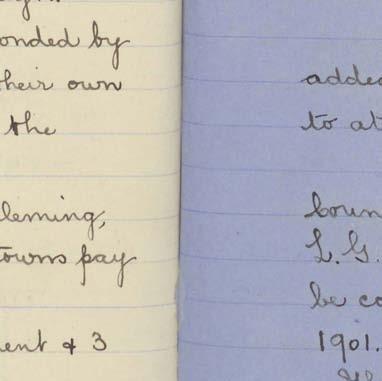 onded by
their own
the
leming,
towns pay
ent & 3
added
to at
boun
L. G.
be co
1901.